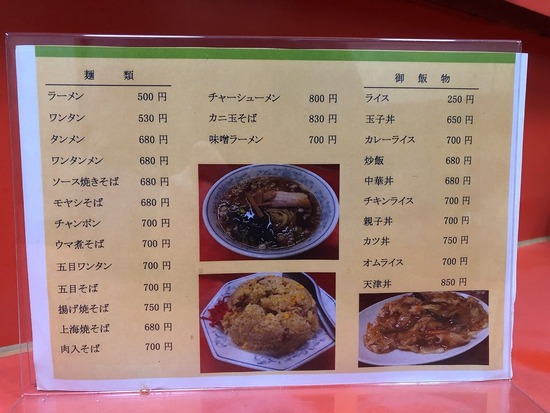 麺　類
ラーメン 500 円
ワンタン 530 円
タンメン 680 円
ワンタンメン 680 円
ソース焼きそば 680 円
モヤシそば 680 円
チャンポン 700 円
ウマ煮そば 700 円
五目ワンタン 700 円
五目そば 700 円
揚げ焼そば 750 円
上海焼そば 680 円
肉入そば 700 円
チャーシューメン 800 円
カニ玉そば 830 円
味噌ラーメン 700 円
御 飯 物
ライス 250 円
玉子丼 650 円
カレーライス 700 円
炒飯 680 円
中華丼 680 円
チキンライス 700 円
親子丼 700 円
カツ丼 750 円
オムライス 700 円
天津丼 850 円